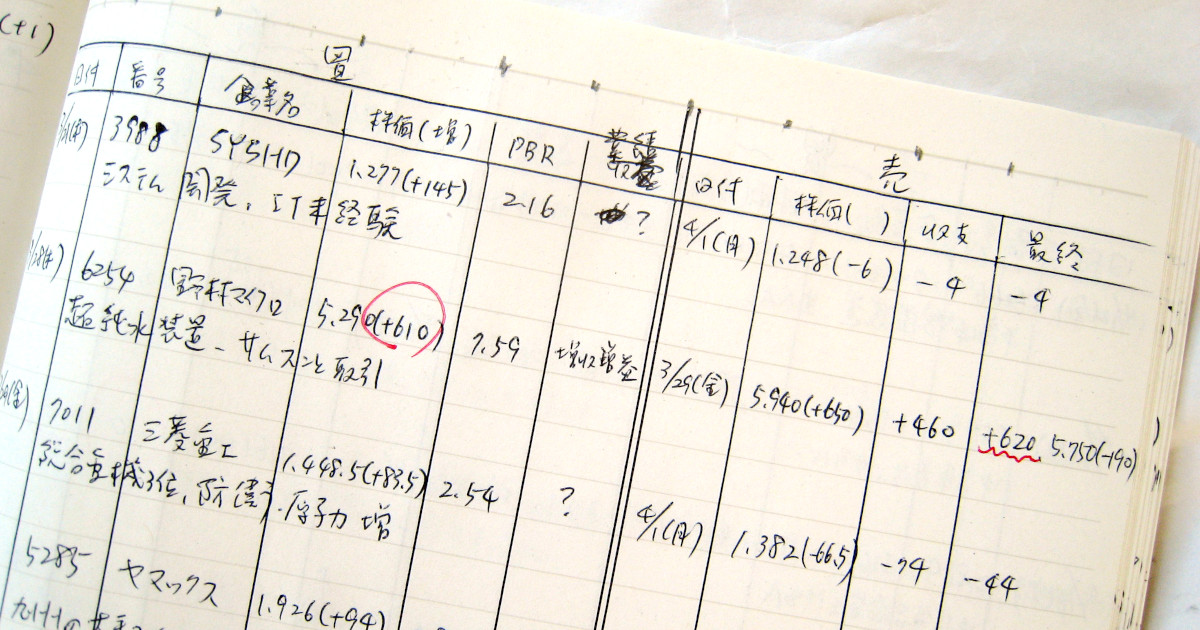 (+1)
買
売
日付 番号 企業名 株価(増) PBR 業績
日付 株価( ) 収支 最終
3988 SYSHD 1.277(+145) 2.16 ?
4/1(月) 1.248(-6) -4 -4
システム開発、IT未経験
6254 野村マイクロ 5.290(+610) 7.59 増収増益
3/29(金) 5.940(+650) +460 +620 5.750(-190)
超純水装置-サムスンと取引
(金) 7011 三菱重工 1.448.5(+83.5) 2.54 ?
4/1(月) 1.382(-66.5) -74 -44
総合重機3位、防衛・原子力増
5285 ヤマックス 1.926(+94)